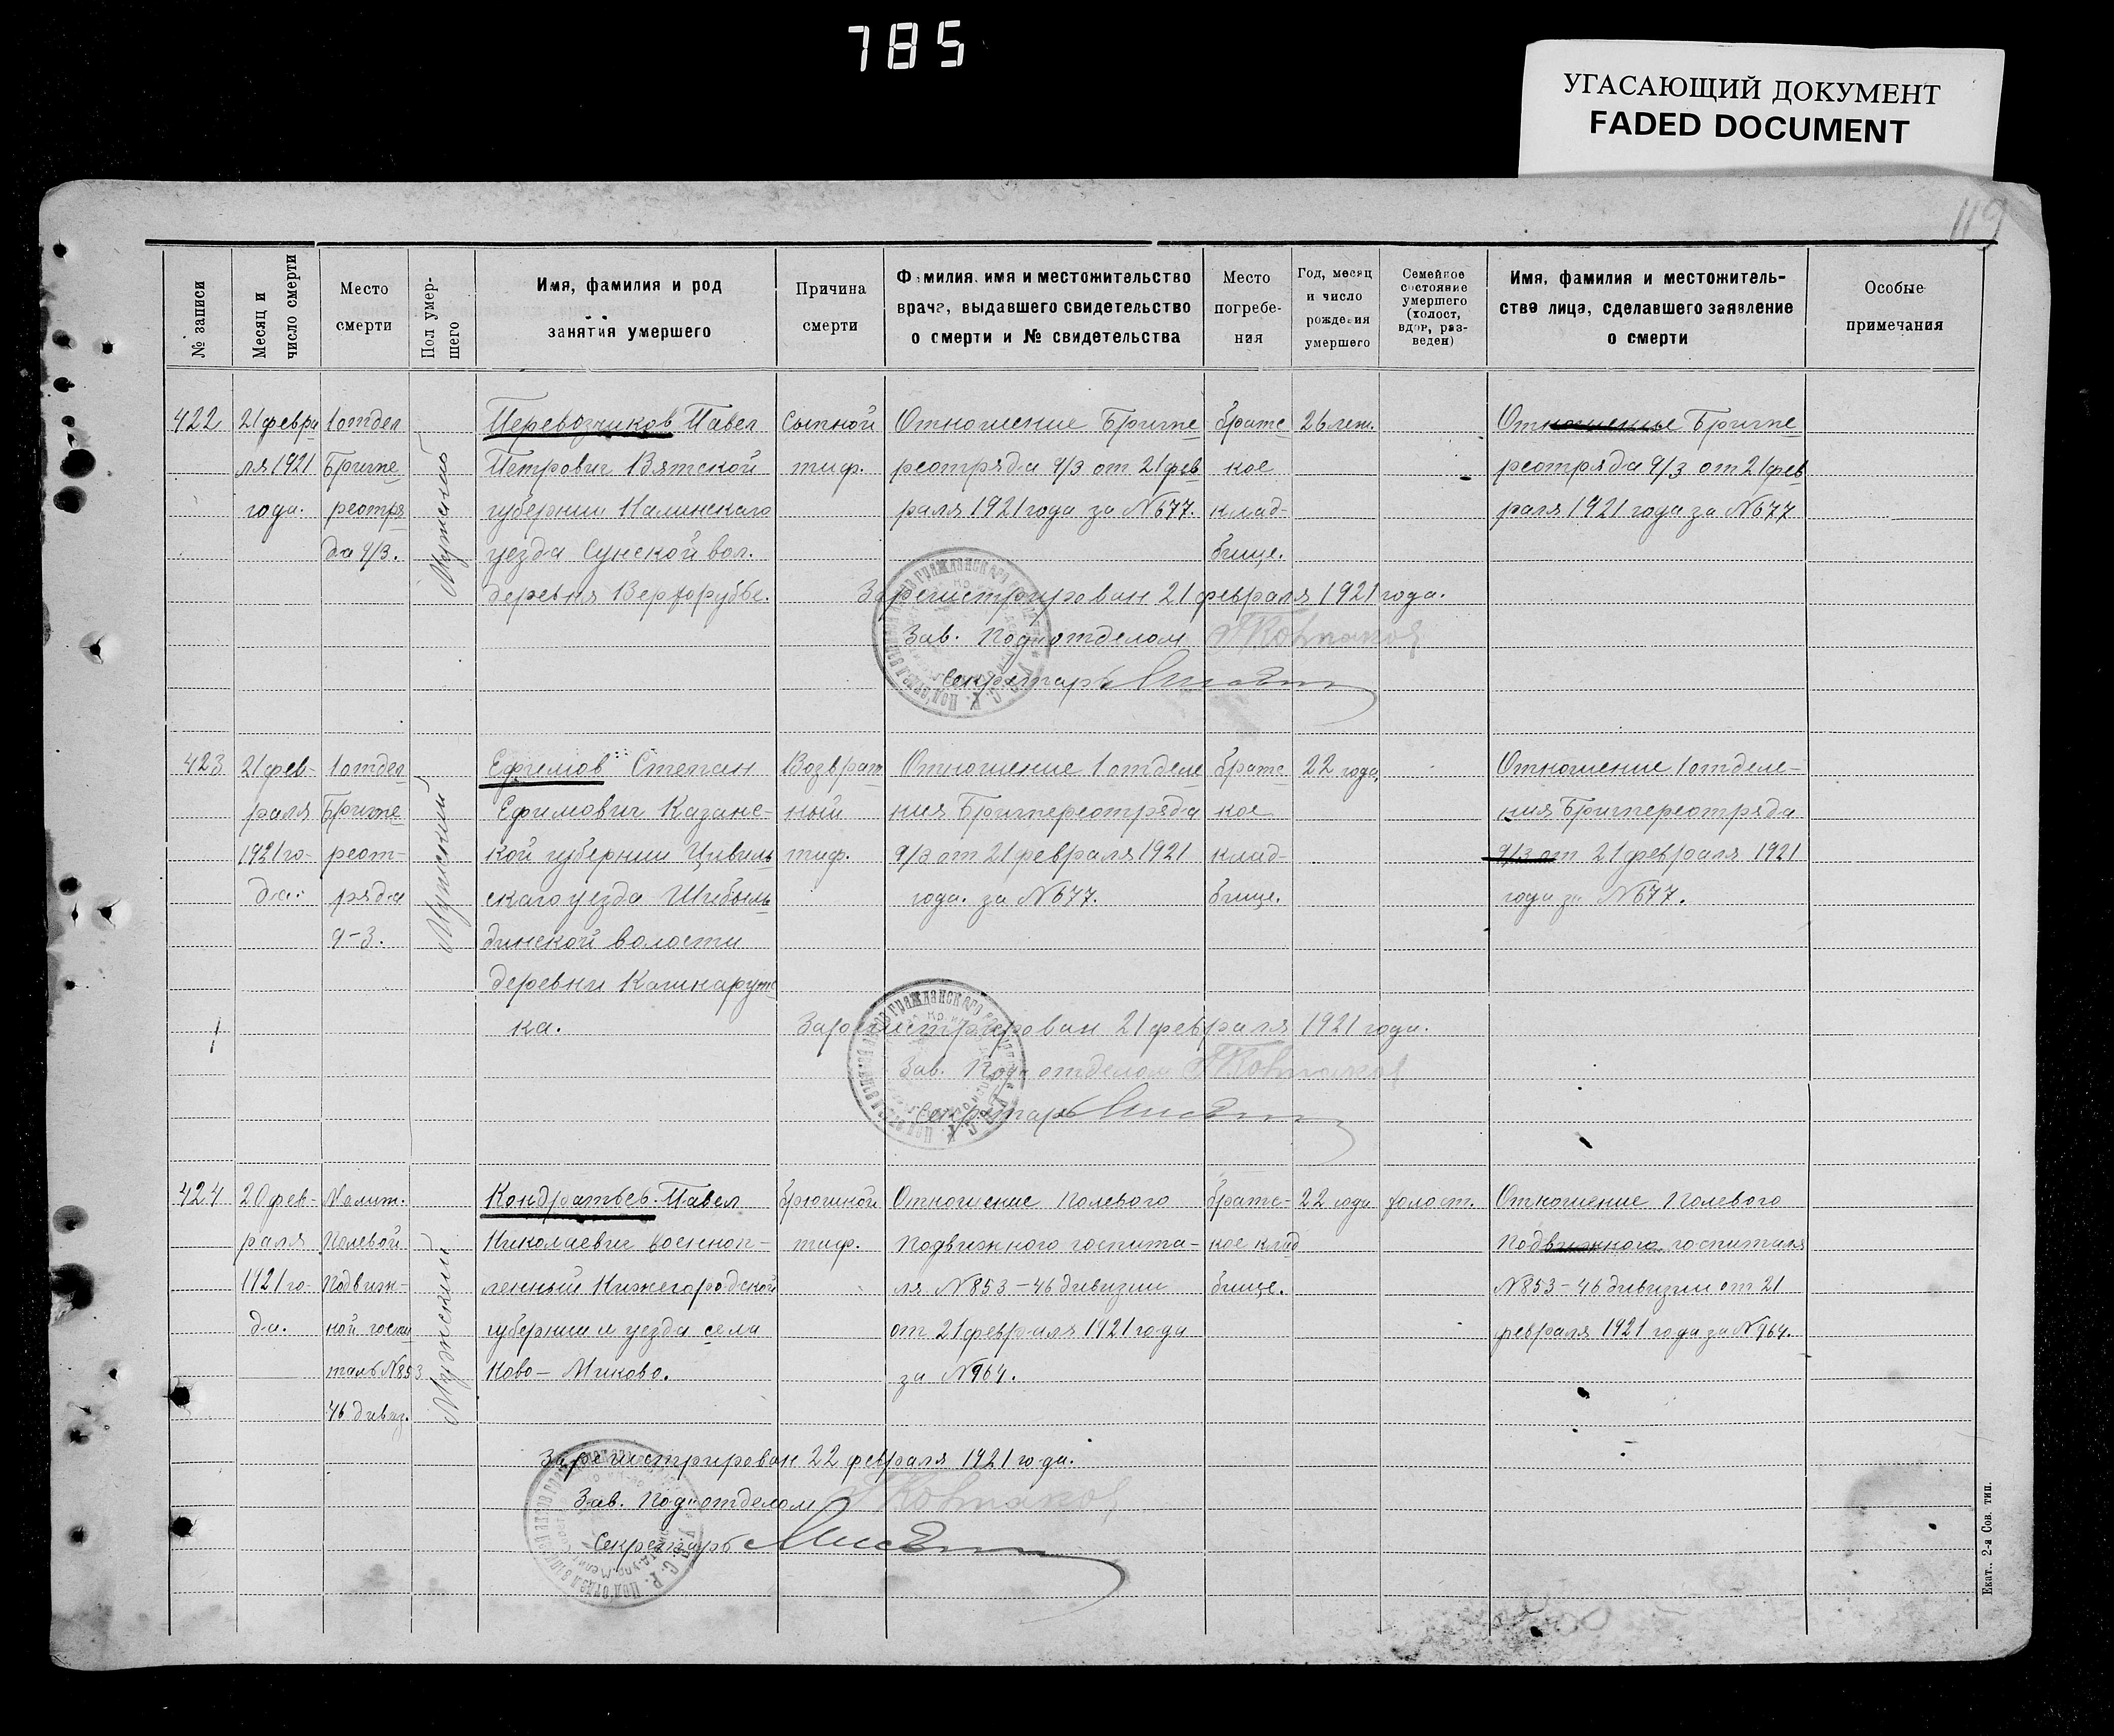 785
УГАСАЮЩИЙ ДОКУМЕНТ
FADED DOCUMENT
119
№ записи
Месяц и число смерти
Место смерти
Пол умершего
Имя, фамилия и род занятия умершего
Причина смерти
Фамилия, имя и местожительство врача, выдавшего свидетельство о смерти и № свидетельства
Место погребения
Год, месяц и число рождения умершего
Семейное состояние умершего (холост, вдов, разведен)
Имя, фамилия и местожительство лица, сделавшего заявление о смерти
Особые примечания
422
21 февра
ля 1921
года.
1 отдел
Бригпе
реотря
да 9/3.
Мужской
Перевозчиков Павел
Петрович Вятской
губернии
уезда Сунской вол.
деревня
Сыпной
тиф.
Отношение Бригпе
реотряда 9/3 от 21 фев
раля 1921 года за №677.
братс
кое
клад-
бище.
26 лет.
Отношенье Бригпе
реотряда 9/3 от 21 фев
раля 1921 года за №677
Зарегистрирован 21 февраля 1921 года.
Зав. Подотделом
Секретарь
423
21 фев-
раля
1921 го-
да.
1 отдел
Бригпе
реот-
ряда
9-3.
Мужский
Ефимов Степан
Ефимович Казанс-
кой губернии Цивиль
скаго уезда
динской волости
деревни
ка.
Возврат
ный
тиф.
Отношение 1 отделе
ния Бригпереотряда
9/3 от 21 февраля 1921
года. за №677.
братс
кое
клад-
бище.
22 года,
Отношение 1 отделе-
ния Бригпереотряда
9/3 от 21 февраля 1921
года за №677.
Зарегистрирован 21 февраля 1921 года.
Зав. Подотделом
Секретарь
424
20 фев-
раля
1921 го-
да.
Полевой
Подвиж-
ной госпи
таль №853
46 дивиз.
Мужский
Кондратьев Павел
Николаевич военноп-
ленный Нижегородской
губернии и уезда села
брюшной
тиф.
Отношение Полевого
Подвижного госпита-
ля №853-46 дивизии
от 21 февраля 1921 года
за №964.
братс-
кое клад
бище.
22 года
холост.
Отношение Полевого
Подвижного госпиталя
№853-46 дивизии от 21
февраля 1921 года за №964.
Зарегистрирован 22 февраля 1921 года.
Зав. Подотделом
Секретарь
Екат., 2-я Сов. тип.